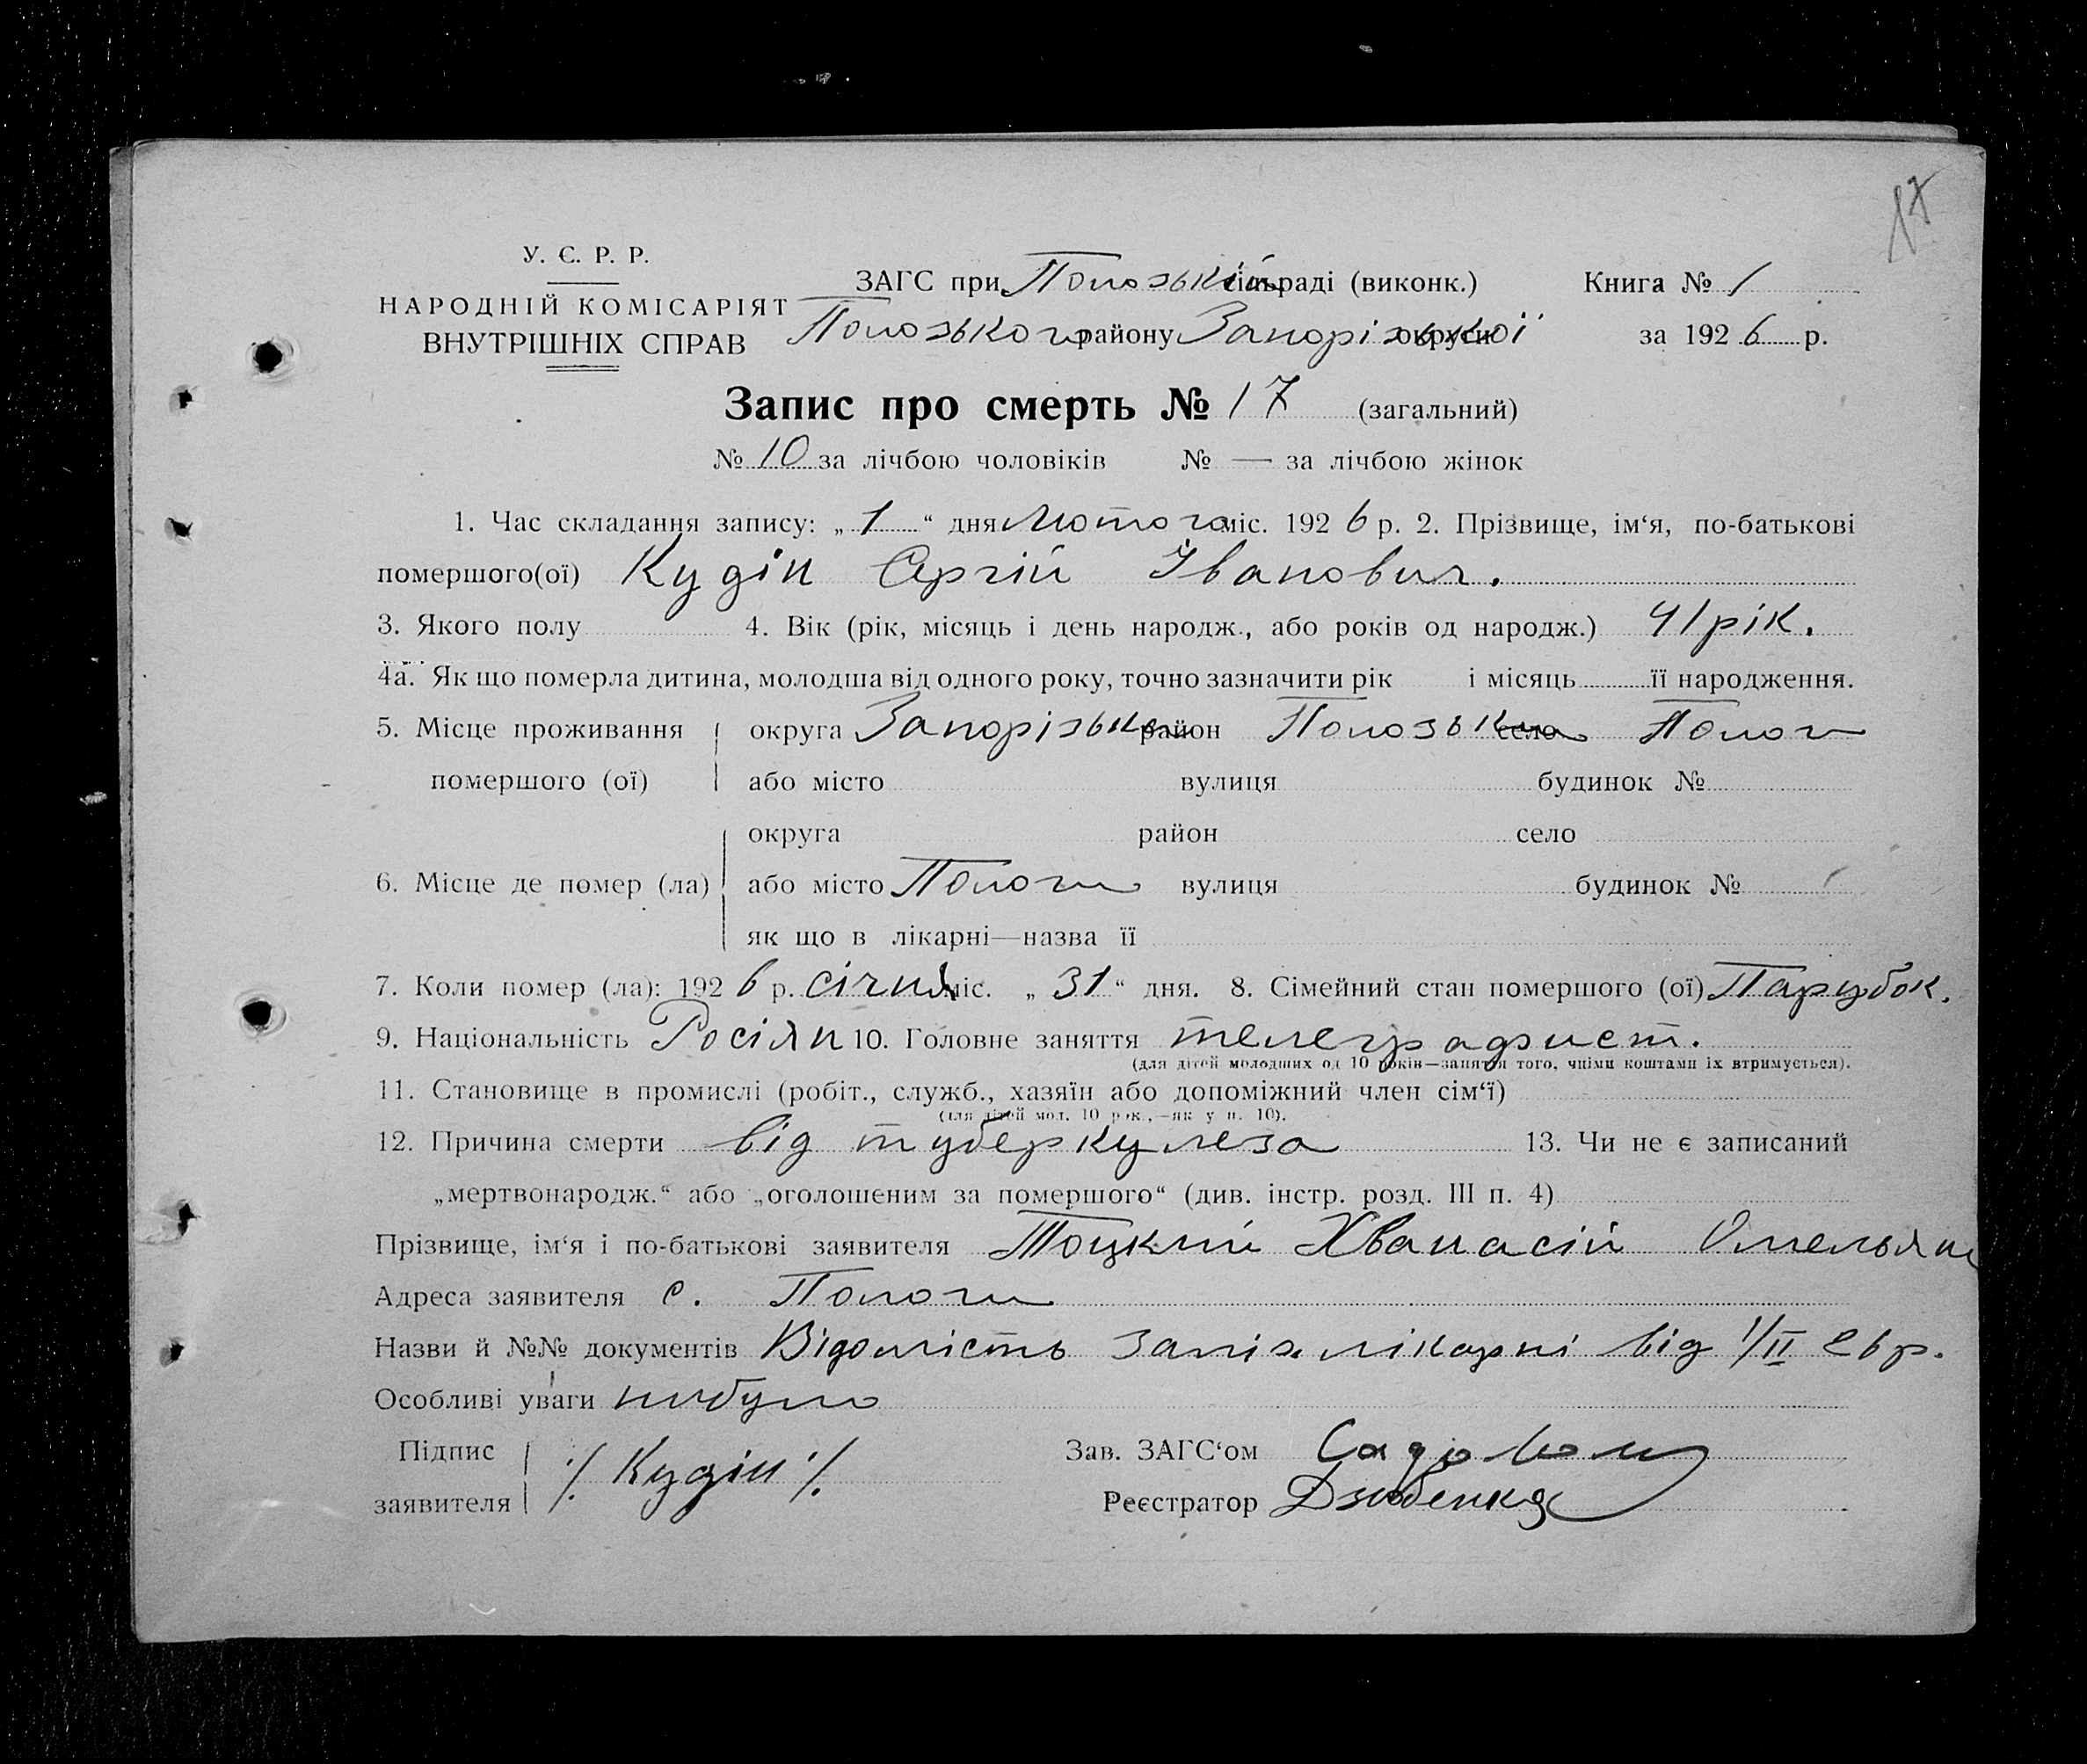 17
У. С. Р. Р.
НАРОДНІЙ КОМІСАРІЯТ
ВНУТРІШНІХ СПРАВ
ЗАГС при Положській сільраді (виконк.)
Положського району Запорізької округи
Книга № 1
за 1926 р.
Запис про смерть № 17 (загальний)
№ 10 за лічбою чоловіків № — за лічбою жінок
1. Час складання запису: „1“ дня Лютого міс. 1926 р. 2. Прізвище, ім‘я, по-батькові
помершого(ої) Кудін Сергій Іванович.
3. Якого полу 4. Вік (рік, місяць і день народж., або років од народж.) 41 рік.
4а. Як що померла дитина, молодша від одного року, точно зазначити рік і місяць її народження.
5. Місце проживання округа Запорізька район Положськ село Пологи
помершого (ої) або місто вулиця будинок №
округа район село
6. Місце де помер (ла) або місто Пологи вулиця будинок №
як що в лікарні—назва її
7. Коли помер (ла): 1926 р. січня міс. „31“ дня. 8. Сімейний стан помершого (ої) Парубок.
9. Національність Росіян 10. Головне заняття телеграфист.
(для дітей молодших од 10 років—заняття того, чиїми коштами їх втримується).
11. Становище в промислі (робіт., служб., хазяїн або допоміжний член сім‘ї)
(для дітей мол. 10 рок.,—як у п. 10).
12. Причина смерти від туберкулеза 13. Чи не є записаний
„мертвонародж.“ або „оголошеним за помершого“ (див. інстр. розд. III п. 4)
Прізвище, ім‘я і по-батькові заявителя Тоцкий Хванасій Омельян
Адреса заявителя с. Пологи
Назви й №№ документів Відомість заліз. лікарні від 1/II 26 р.
Особливі уваги небуло
Підпис
заявителя /. Кудін /.
Зав. ЗАГС‘ом
Реєстратор Дзюбенко